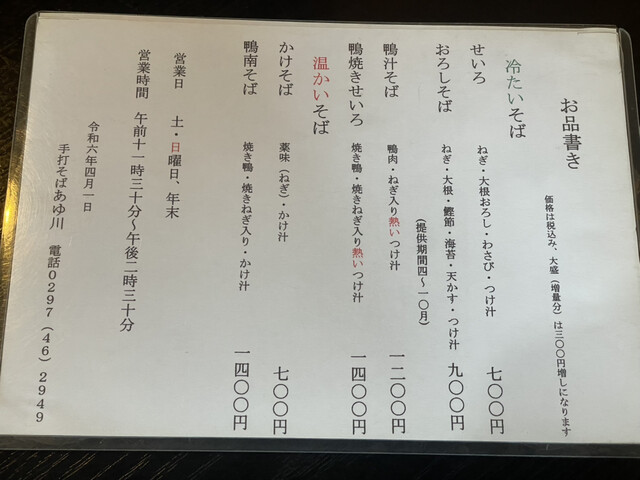 お品書き
価格は税込み、大盛(増量分)は三〇〇円増しになります
冷たいそば
せいろ ねぎ・大根おろし・わさび・つけ汁 七〇〇円
おろしそば ねぎ・大根・鰹節・海苔・天かす・つけ汁 九〇〇円
(提供期間四～一〇月)
鴨汁そば 鴨肉・ねぎ入り熱いつけ汁 一二〇〇円
鴨焼きせいろ 焼き鴨・焼きねぎ入り熱いつけ汁 一四〇〇円
温かいそば
かけそば 薬味(ねぎ)・かけ汁 七〇〇円
鴨南そば 焼き鴨・焼きねぎ入り・かけ汁 一四〇〇円
営業日 土・日曜日、年末
営業時間 午前十一時三十分～午後二時三十分
令和六年四月一日
手打そばあゆ川 電話0297(46)2949